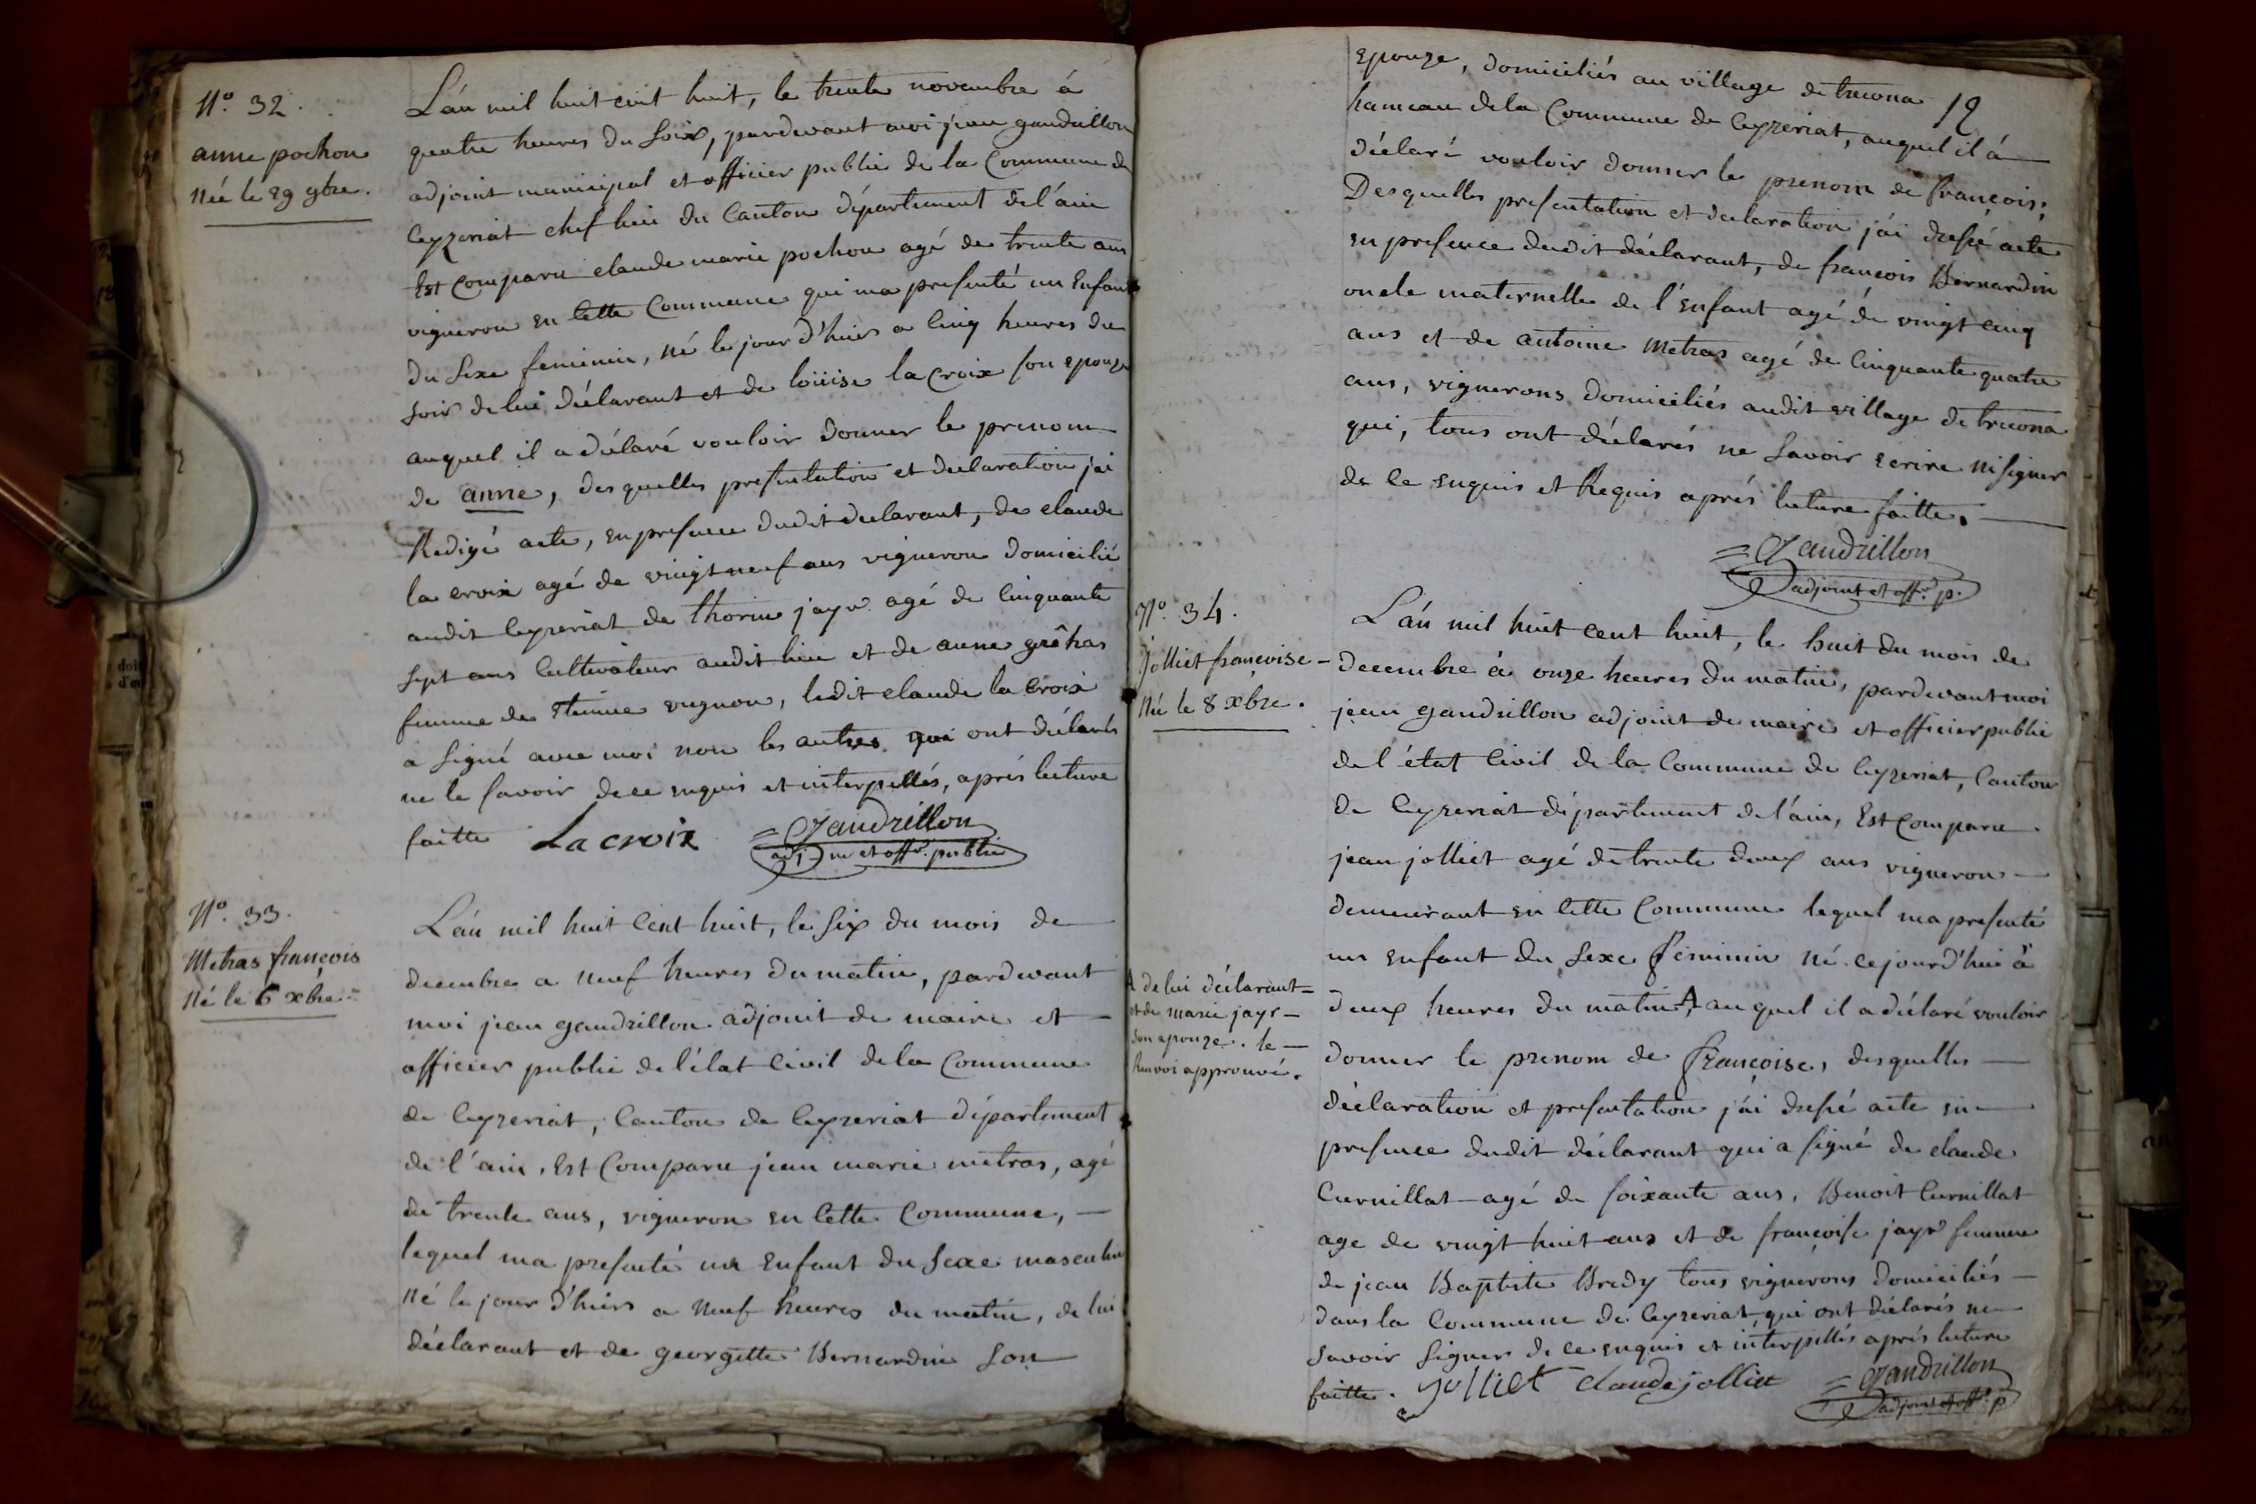 N.º 32.
anne pochon
Née le 29 9bre.
L'án mil huit cent huit, le trente novembre á
quatre heures du soir, pardevant moi jean gaudrillon
adjoint municipal et officier public de la Commune de
Ceyzeriat chef lieu du Canton département de l'áin
Est comparu claude marie pochon agé de trente ans
vigneron en Cette Commune qui ma presenté un Enfant
du Sexe feminin, né le jour d'hiers a Cinq heures du
soir de lui déclarant et de loüise la croix son epouze
auquel il a déclaré vouloir donner le prenom
de anne, des quelles presentation et declaration j'ai
Redigé acte, en presence dudit declarant, de claude
la croix agé de vingt neuf ans vigneron domicilié
audit Ceyzeriat de thorin jayr agé de Cinquante
sept ans Cultivateur audit lieu et de anne
femme de Etienne vugnon, ledit claude la Croix
a signé avec moi non les autres qui ont déclarés
ne le savoir de ce enquis et interpellés, aprés lecture
faitte Lacroix Gaudrillon
adj m et offr. public
N.º 33.
Metras françois
Né le 6 xbre
L'án mil huit Cent huit, le six du mois de
decembre a neuf heures du matin, pardevant
moi jean gaudrillon adjoint de maire et
officier public de l'état Civil de la Commune
de Ceyzeriat, Canton de Ceyzeriat département
de l'ain, Est Comparu jean marie metras, agé
de trente ans, vigneron en Cette Commune,
lequel ma presenté un Enfant du Sexe masculin
Né le jour d'hiers a Neuf heures du matin, de lui
déclarant et de georgette Bernardin son
12
Epouze, domiciliés au village de trecona
hameau de la Commune de Ceyzeriat, auquel il á
déclaré vouloir donner le prenom de françois;
Desquelles presentation et declaration j'ái dressé acte
en presence dudit déclarant, de françois Bernardin
oncle maternelle de l'Enfant agé de vingt cinq
ans et de antoine Metras agé de Cinquante quatre
ans, vignerons domiciliés audit village de trecona
qui, tous ont déclarés ne savoir ecrire ni signer
de ce enquis et Requis aprés lecture faitte.
Gaudrillon
adjoint et offr. p.
N.º 34.
jolliet françoise
Née le 8 xbre.
L'án mil huit cent huit, le huit du mois de
decembre á onze heures du matin, pardevant moi
jean gaudrillon adjoint de maire et officier public
de l'état Civil de la Commune de Ceyzeriat, Canton
de Ceyzeriat département de l'áin, Est Comparu
jean jolliet agé de trente deux ans vigneron
demeurant en Cette Commune lequel ma presenté
un enfant du Sexe feminin né cejourd'hui á
deux heures du matin, A auquel il a déclaré vouloir
A de lui déclarant
et de marie jayr
son epouze. le
Renvoi approuvé.
donner le prenom de françoise, desquelles
déclaration et presentation j'ái dressé acte en
presence dudit déclarant qui a signé de claude
Curnillat agé de soixante ans, Benoit Curnillat
age de vingt huit ans et de françoise jayr femme
de jean Baptiste Bredy tous vignerons domiciliés
dans la Commune de Ceyzeriat, qui ont déclarés ne
savoir signer de ce enquis et interpellés aprés lecture
faitte. jolliet claude jolliet Gaudrillon
adjoint et offr. p